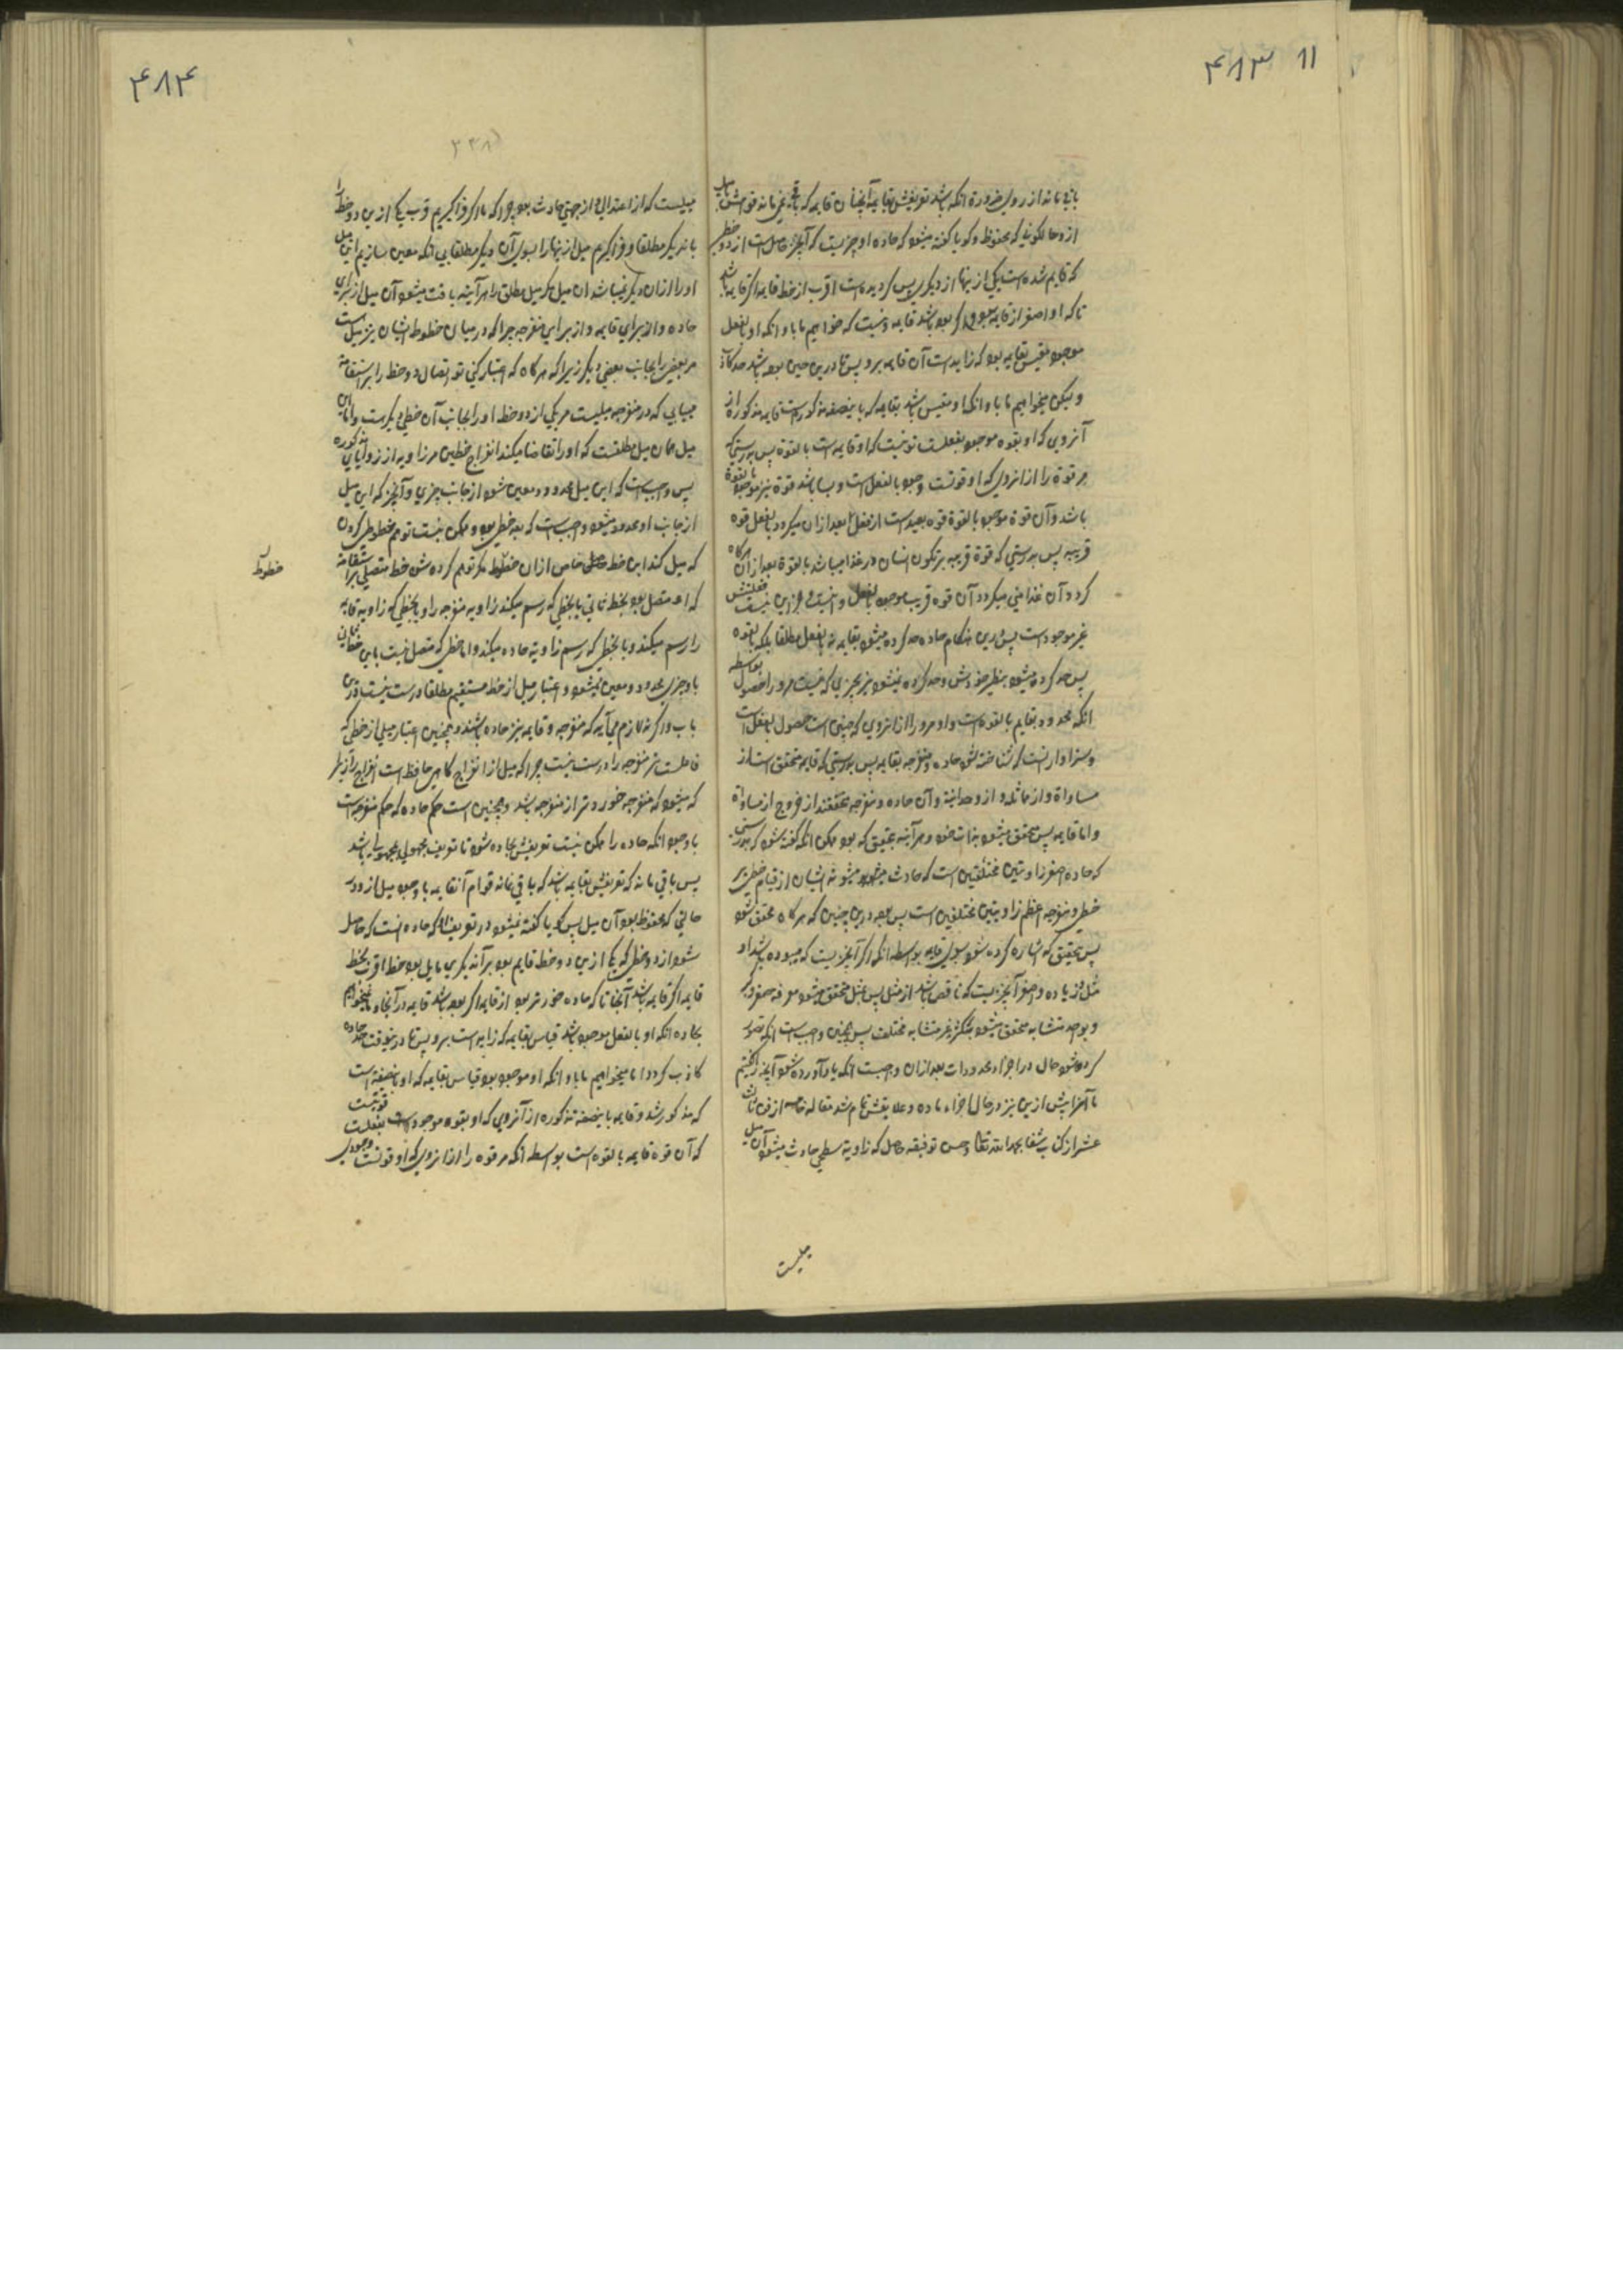 ۴۸۳ ۱۱
باقی ماند از روی ضرورة انکه باشد تعریفش بقایمه آنچنان قایمه که باقی نمی ماند قوامش با میل
از دو حالکونیکه محفوظ وگویا کفته میشود که حاده او چیزیست که آنچیز حاصل است از دو خطی
که قایم شده است یکی ازینها از دیگری پس گردیده است اقرب از خط قایمه اگر قایمه باشد
تا که او اصغر از قایمه اگر بود باشد قایمه ونیست که خواهیم ما باو انکه او بالفعل
موجود مقیس بقایمه بود که زاید است آن قایمه برو پس تا درین حین بوده باشد حد کاذب
ولیکن میخواهیم ما باو انکه او مقیس باشد بقایمه که باینصفه مذکوره است قایمه مذکوره از
آنروی که او بقوه موجود بفعلست تو نیست که او قایمه است بالقوه پس بدرستی که
مر قوة را از انروی که او قوتست وجود بالفعل است وبسا باشد قوة نیز موجود بالقوة
باشد وآن قوة موجود بالقوة قوه بعیده است از فعل بعد ازان میگردد بالفعل قوه
قریبه پس بدرستی که قوة قریبه بر تکون انسان در غذا میباشد بالقوة بعد ازان هرگاه
گردد آن غذا منی میگردد آن قوه قریب موجود بالفعل و فعلش
غیر موجود است پس درین هنگام حاده حد کرده میشود بقایمه نه بالفعل مطلقا بلکه بقوه
پس حد کرده میشود بنظیر خودش وحد کرده نمیشود نیز بچیزی که نیست مرو را حصول بواسطه
انکه محدود بقایم بالقوه است واو مرو را ازانروی که چنین است حصول بالفعل است
وسزاوار نیست که شناخته شود حاده ومنفرجه بقایمه پس بدرستی که قایمه متحقق است از
مساواة واز مماثلة واز وحدانیة وآن حاده ومنفرجه متحققند از خروج از مساواة
واما قایمه پس متحقق میشود بذات خود وهر آینه بتحقیق که بود ممکن انکه کفته شود که بدرستی
که حاده اصغر زاویتین مختلفتین است که حادث میشود از قیام خطی بر
خطی ومنفرجه اعظم زاویتین مختلفتین است پس بعد درین چنین که هرگاه محقق شود
پس بتحقیق که اشاره کرده شود بسوی قایمه بواسطه انکه اکبر آنچیزیست که میبوده باشد او
مثل وزیاده واصغر آنچیزیست که ناقص باشد از مثل پس بمثل متحقق میشود معرفه صغر وکبر
وبوحد متشابه متحقق میشود متکثر غیر متشابه مختلف پس همچنین واجب است انکه تصور
کرده شود حال در اجزاء محدودات بعد ازان واجبست انکه یاد آورده شود آنچه را گفتیم
ما آنرا پیش ازین نیز در حال اجزاء ماده وعلایقش تمام شد مقاله خامسه از فن ثالث
عشر از کتاب شفا بحمد الله تعالی وحسن توفیقه حاصل که زاویه سطحی حادث میشود آن میل
میلیست
۴۸۴
میلیست که از اعتدالی از جهتی حادث بود چرا که ما اگر فراگیریم قرب یکی ازین دو خط را
باندیگر مطلقا وفراگیریم میل ازینها را بسوی آن دیگر مطلقا بی انکه معین سازیم این میل
او را ازان دیگر نمیباشد ان میل مگر میل مطلق را هر آینه یافت میشود آن میل از برای
حاده واز برای قایمه واز برای منفرجه چرا که در میان خطوط ایشان نیز میل است
مر بعضی را بجانب بعضی دیگر زیرا که هرگاه که اعتبار کنی تو اتصال دو خط را بر استقامة
میبایی که در منفرجه میلیست مر یکی از دو خط او را بجانب آن خطی دیگرست واما این
میل همان میل مطلقست که او را تقاضا میکند انفراج خطین مر زاویه از زوایای مذکوره
پس واجب است که این میل محدود ومعین شود از جانب چیزی وآنچیز که این میل
از جانب او محدود میشود واجب است که بعد خطی بود وممکن نیست توهم خطوطی کردن
که میل کند این خط خاص ازان خطوط مگر توهم کرده شود خط متصلی بر استقامة
خطوط
که او متصل بود بخط ثانی یا بخطی که رسم میکند زاویه منفرجه را ویا بخطی که زاویه قایمه
را رسم میکند ویا بخطی که رسم زاویه حاده میکند واما خطی که متصل نیست باین خط ثانی
باو چیزی محدود ومعین نمیشود واعتبار میل از خط مستقیم مطلقا درست نیست درین
باب واگر نه لازم می آید که منفرجه وقایمه نیز حاده باشند وهمچنین اعتبار میلی از خطی که
فاعلست مر منفرجه را درست نیست چرا که میل از انفراج گاهی حافظ است انفراج را زیرا
که میشود که منفرجه خوردتر از منفرجه باشد وهمچنین است حکم حاده که حکم منفرجه است
با وجود انکه حاده را ممکن نیست تعریفش بحاده شود تا تعریف مجهولی بمجهول باشد
پس باقی ماند که تعریفش بقایمه باشد که باقی نماند قوام آنقایمه با وجود میل از دو در
حالتی که محفوظ بود آن میل پس گویا کفته میشود در تعریف او که حاده انست که حاصل
شود از دو خطی که یکی ازین دو خط قایم بود بر آندیگری مایل بود خط اقرب بخط
قایمه اگر قایمه باشد آنجا تا که حاده خوردتر بود از قایمه اگر بود باشد قایمه در آنجا و نمیخواهیم
بحاده انکه او بالفعل موجود باشد قیاس بقایمه که زاید است برو پس تا درینوقت حد حاده
کاذب گردد اما میخواهیم ما باو انکه او موجود بود قیاس بقایمه که او باینصفه است
که مذکور شد وقایمه باینصفه مذکوره از آنروی که او بقوه موجود است بفعلست قوتیست
که آن قوة قایمه بالقوه است بواسطه انکه مر قوه را ازانروی که او قوتست وجودی